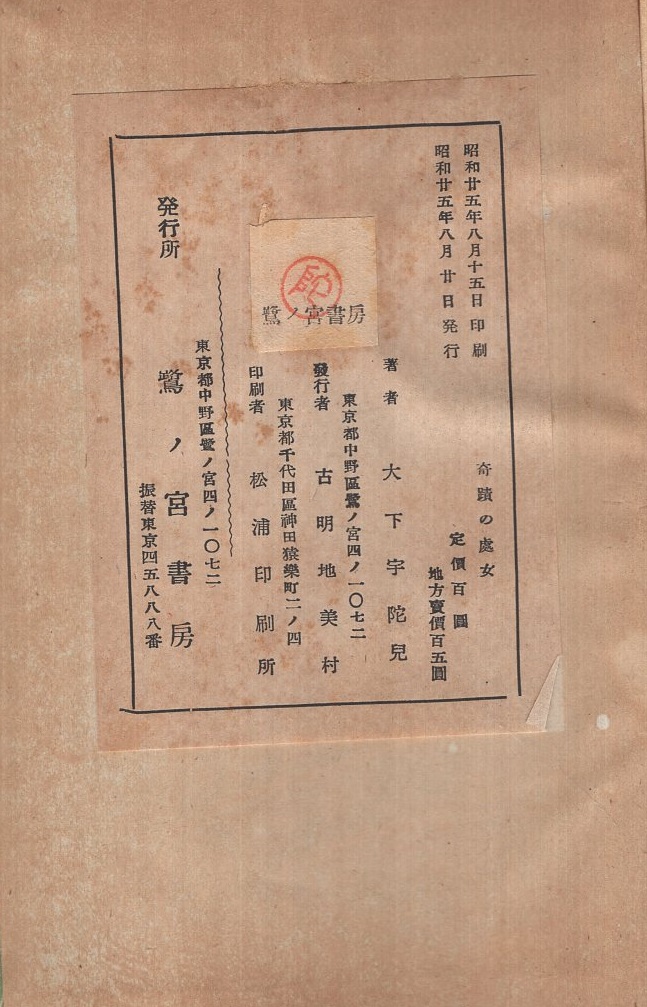 昭和廿五年八月十五日印刷
昭和廿五年八月廿日発行
奇蹟の處女
定價百圓
地方賣價百五圓
著者 大下宇陀兒
東京都中野區鷺ノ宮四ノ一〇七二
發行者 古明地美村
東京都千代田區神田猿樂町二ノ四
印刷者 松浦印刷所
陀
鷺ノ宮書房
東京都中野區鷺ノ宮四ノ一〇七二
発行所 鷺ノ宮書房
振替東京四五八八八番